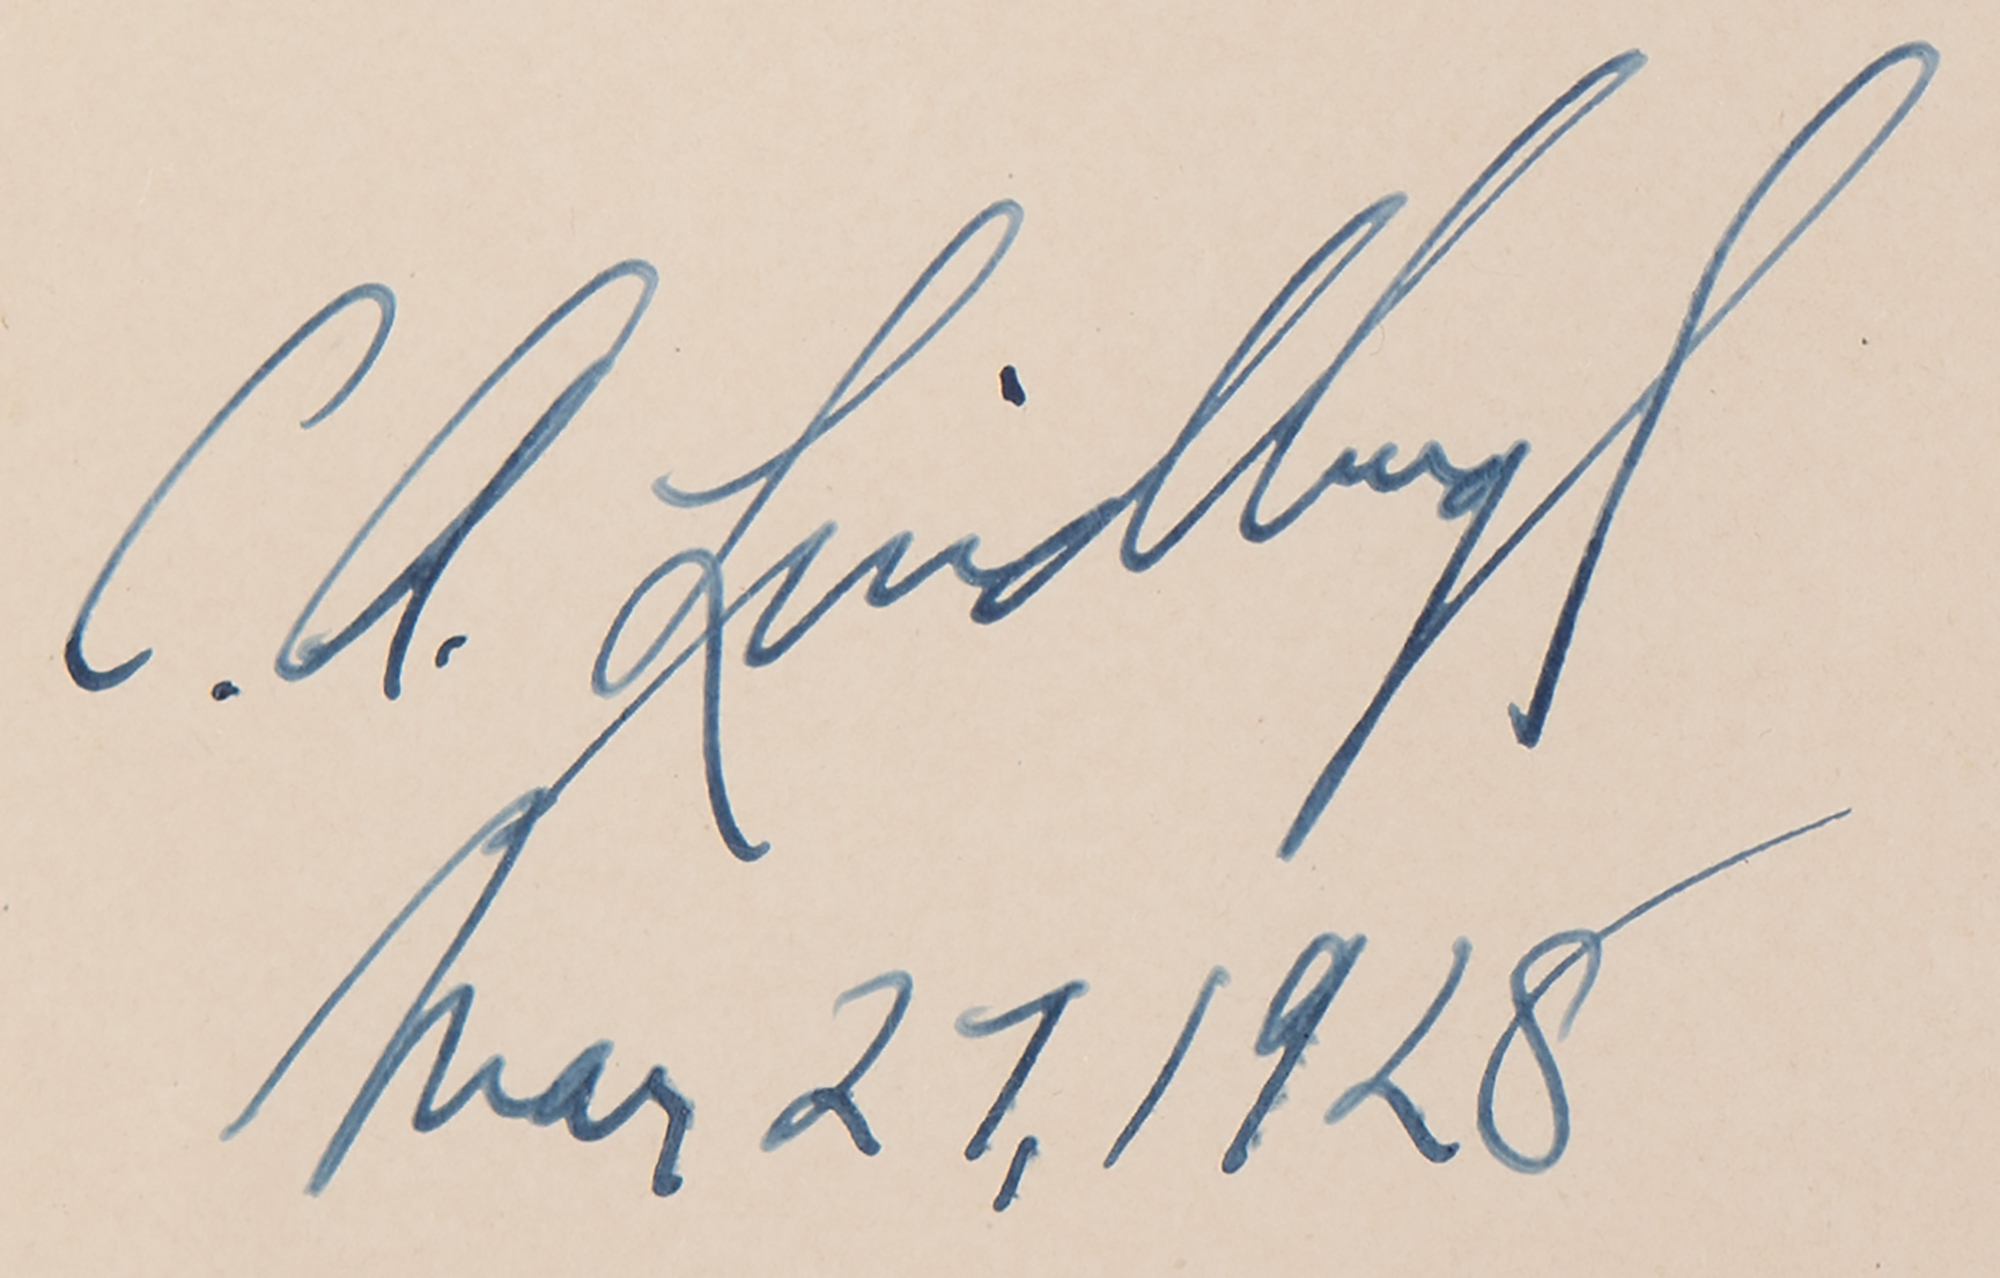 C. A. Lindbergh
Mar 27, 1928